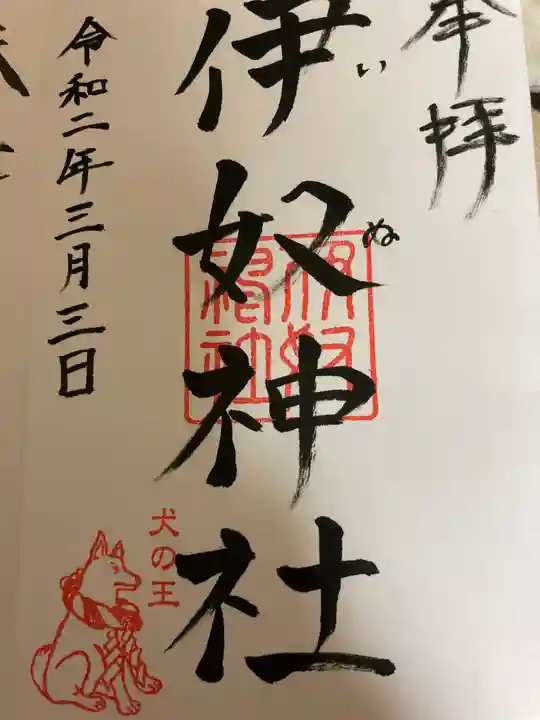 奉拝
伊奴神社
いぬ
伊奴
神社
令和二年三月三日
犬の王